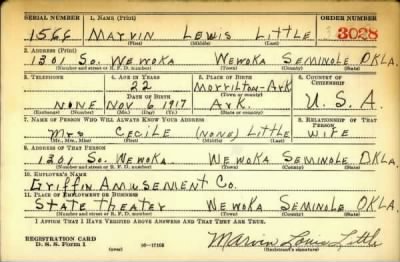 SERIAL NUMBER 1. NAME (Print) ORDER NUMBER
1566 MARVIN LEWIS LITTLE 3028
(First) (Middle) (Last)
2. ADDRESS (Print)
1301 SO. WEWOKA WEWOKA SEMINOLE OKLA.
(Number and street or R. F. D. number) (Town) (County) (State)
3. TELEPHONE 4. AGE IN YEARS 5. PLACE OF BIRTH 6. COUNTRY OF CITIZENSHIP
22 MORRILTON-ARK
DATE OF BIRTH (Town or county)
NONE NOV 6 1917 ARK. U.S.A.
(Exchange) (No.) (Mo.) (Day) (Yr.) (State or country)
7. NAME OF PERSON WHO WILL ALWAYS KNOW YOUR ADDRESS 8. RELATIONSHIP OF THAT PERSON
MRS CECILE (NONE) LITTLE WIFE
(Mr., Mrs., Miss) (First) (Middle) (Last)
9. ADDRESS OF THAT PERSON
1301 SO. WEWOKA. WEWOKA SEMINOLE OKLA.
(Number and street or R. F. D. number) (Town) (County) (State)
10. EMPLOYER'S NAME
GRIFFIN AMUSEMENT CO.
11. PLACE OF EMPLOYMENT OR BUSINESS
STATE THEATER WEWOKA SEMINOLE OKLA.
(Number and street or R. F. D. number) (Town) (County) (State)
I AFFIRM THAT I HAVE VERIFIED ABOVE ANSWERS AND THAT THEY ARE TRUE.
REGISTRATION CARD
D. S. S. Form 1 (over) 16-17105 Marvin Louis Little
(Registrant's signature)